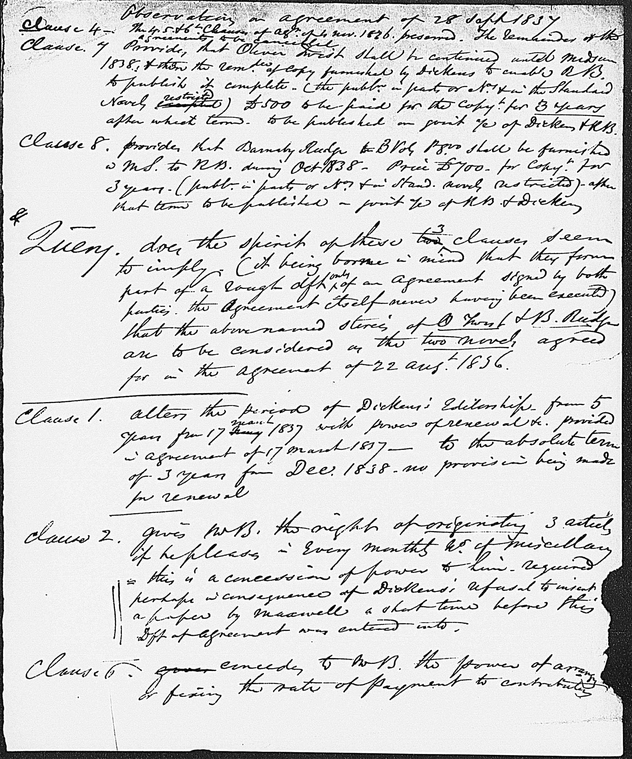 Observations on agreement of 28 Sept 1837
Clause 4 — The 4, 5 & 6th Clauses of agt. of 4 Nov. 1836. preserved. The remainder of the
Clause. 7 Provides, that Oliver Twist shall be continued until midsum
1838, & then the remdr of Copy furnished by Dickens to enable R.B.
to publish it complete. (the publn. in parts or Nos & in the Standard
Novels restricted) £500 to be paid for the Copyt. for 3 years
after which term. to be published on joint % of Dickens & R.B.
Clause 8. provides that Barnaby Rudge in 3 Vols shall be furnished
in M.S. to R.B. during Octr 1838 – Price £700. for Copyt. for
3 years. (publn. in parts or Nos & in Stand. novels restricted) – after
that term to be published on joint % of R B & Dickens
& Query. does the spirit of these 3 clauses seem
to imply, (it being borne in mind that they form
part of a rough dft only of an Agreement signed by both
parties. the Agreement itself never having been executed)
that the above named stories of O Twist & B. Rudge
are to be considered as the two novels agreed
for in the Agreement of 22 augt. 1836.
Clause 1. alters the period of Dickens's Editorship from 5
years from 17 March 1837 with power of renewal &c. provided
in agreement of 17 march 1837 — to the absolute term
of 3 years from Dec. 1838 – no provision being made
for renewal
Clause 2. gives Mr B. the right of originating 3 articles
if he pleases in Every monthly No. of Miscellany
= this is a concession of power to him – required
perhaps in consequence of Dickens's refusal to insert
a paper by Maxwell a short time before this
Dft of Agreement was entered into.
Clause 5. concedes to Mr B. the power of
or fixing the rate of Payment to contributors